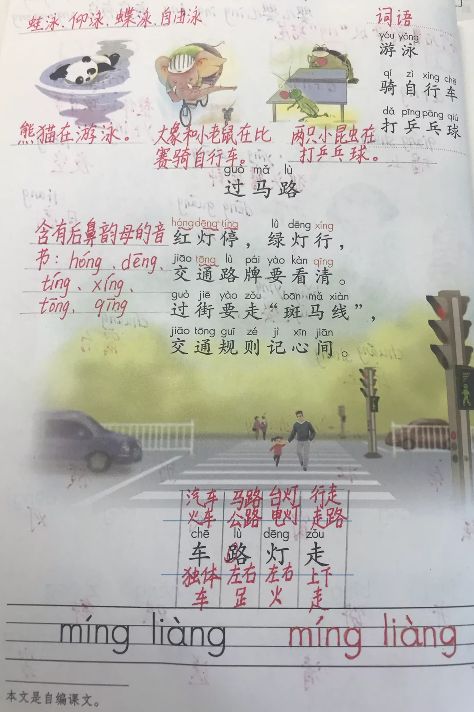 蛙泳、仰泳、蝶泳、自由泳
词语
yóu yǒng
游泳
qí zì xíng chē
骑自行车
dǎ pīng pāng qiú
打乒乓球
熊猫在游泳。
大象和小老鼠在比
赛骑自行车。
两只小昆虫在
打乒乓球。
guò mǎ lù
过马路
含有后鼻韵母的音
节：hóng、dēng、
tíng、xíng、
tōng、qīng
hóng dēng tíng lǜ dēng xíng
红灯停，绿灯行，
jiāo tōng lù pái yào kàn qīng
交通路牌要看清。
guò jiē yào zǒu bān mǎ xiàn
过街要走“斑马线”，
jiāo tōng guī zé jì xīn jiān
交通规则记心间。
汽车 马路 台灯 行走
火车 公路 电灯 走路
chē lù dēng zǒu
车 路 灯 走
独体 左右 左右 上下
车 足 火 走
míng liàng míng liàng
本文是自编课文。